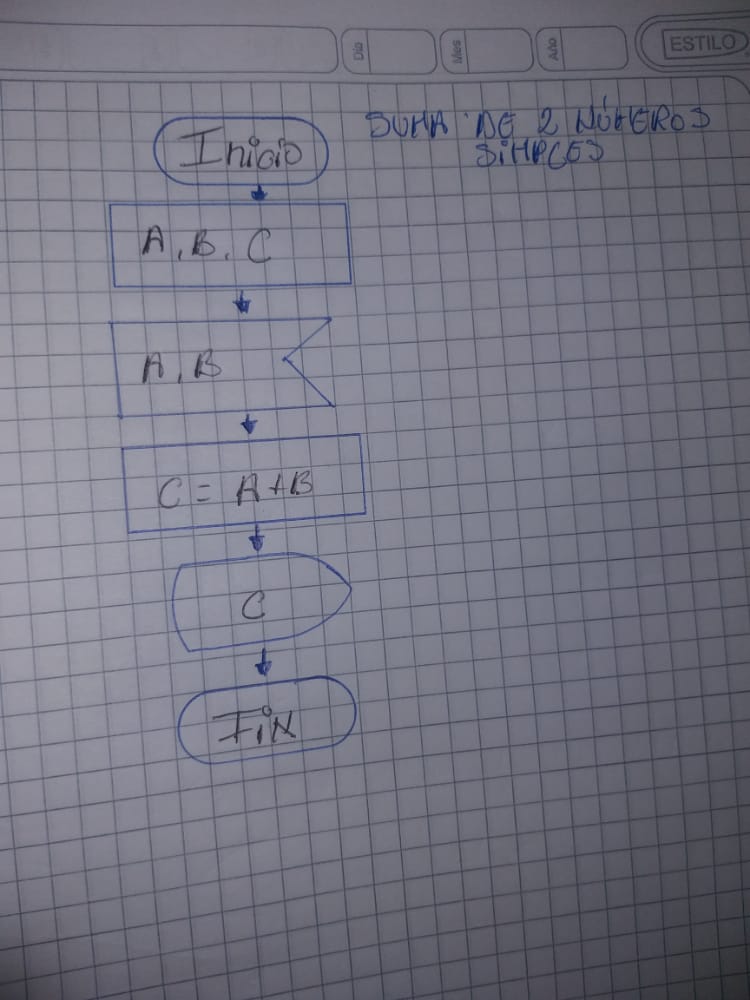 Día
Mes
Año
ESTILO
SUMA DE 2 NÚMEROS
SIMPLES
Inicio
A, B, C
A, B
C = A+B
C
FiN